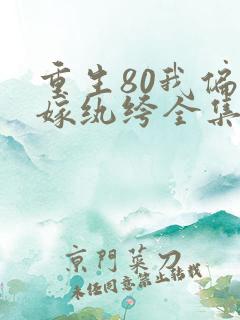 重生80我偏
嫁纨绔全集
京门菜刀
未经同意禁止转载